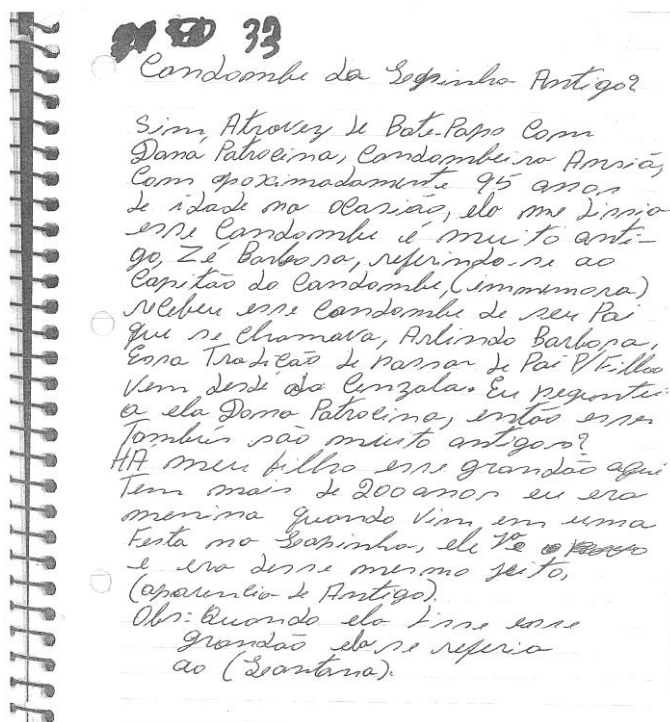 33
Candombe da Lapinha Antigo?
Sim, Atravez de Bate-Papo Com
Dona Patrocina, Candombeira Anciã,
Com apoximadamente 95 anos
de idade na ocasião, ela me dissia
esse Candombe é muito anti-
go, Zé Barbosa, referindo-se ao
Capitão do Candombe, (immemora)
recebeu esse Candombe de seu Pai
que se chamava, Arlindo Barbosa,
Essa Tradição de passar de Pai P/Filho
Vem desde da Cenzala. Eu peguntei
a ela Dona Patrocina, então esses
Também são muito antigos?
HÁ meu filho esse grandão aqui
Tem mais de 200 anos eu era
menina quando Vim em uma
Festa na Lapinha, ele
e era desse mesmo jeito,
(aparencia de Antigo).
Obs: Quando ela disse esse
grandão ela se referia
ao (Santana).